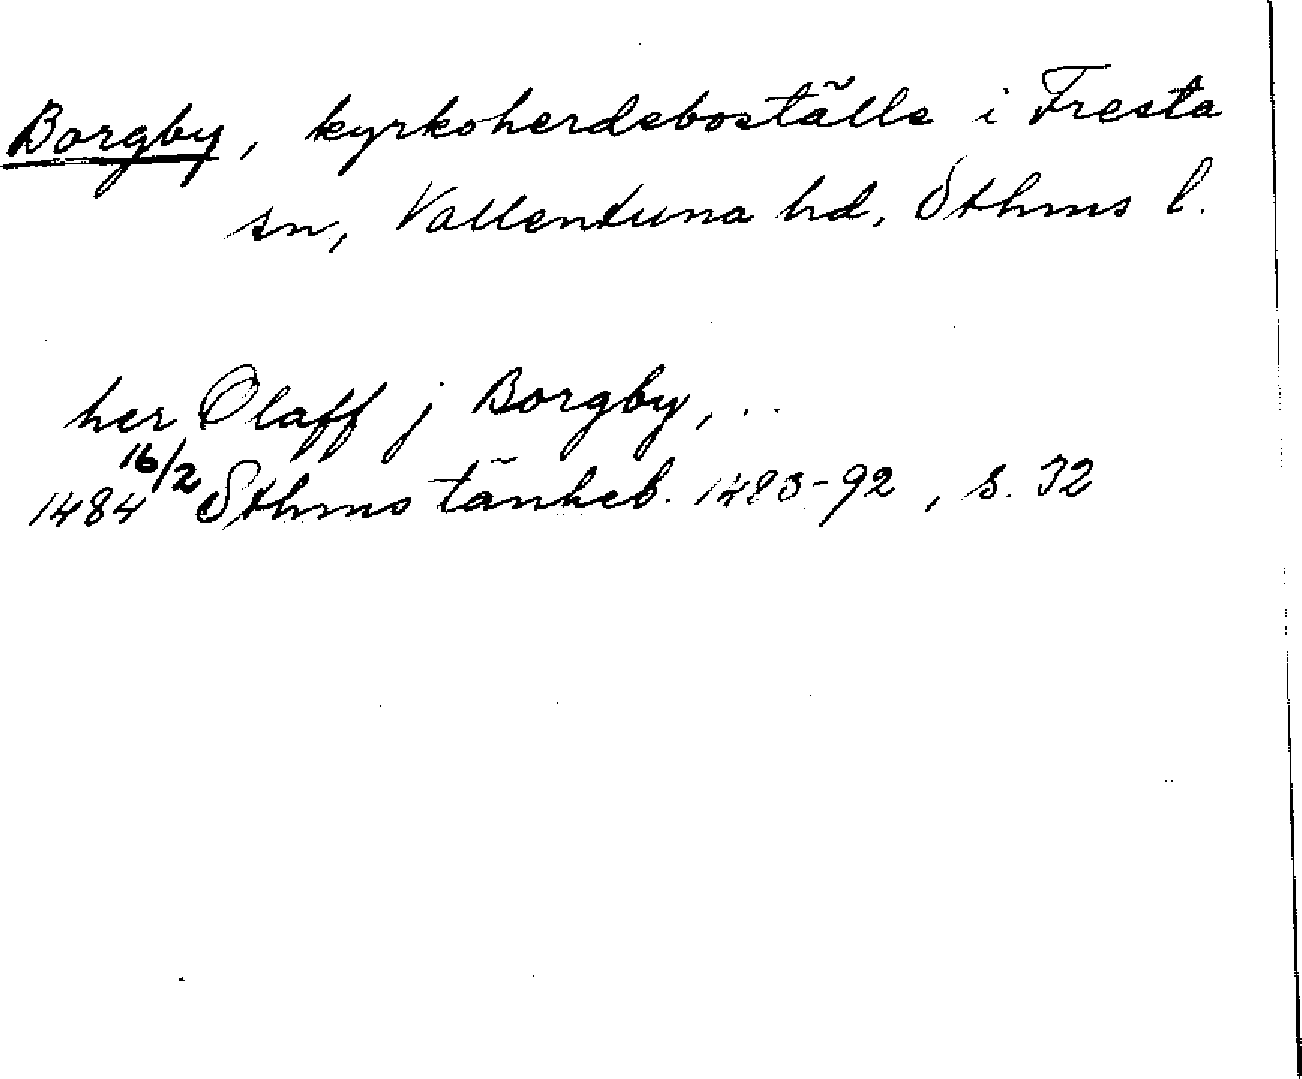 Borgby, kyrkoherdeboställe i Fresta
sn, Vallentuna hd, Sthms l.
her Olaff j Borgby, ..
1484 16/2 Sthms tänkeb. 1483-92, s. 32